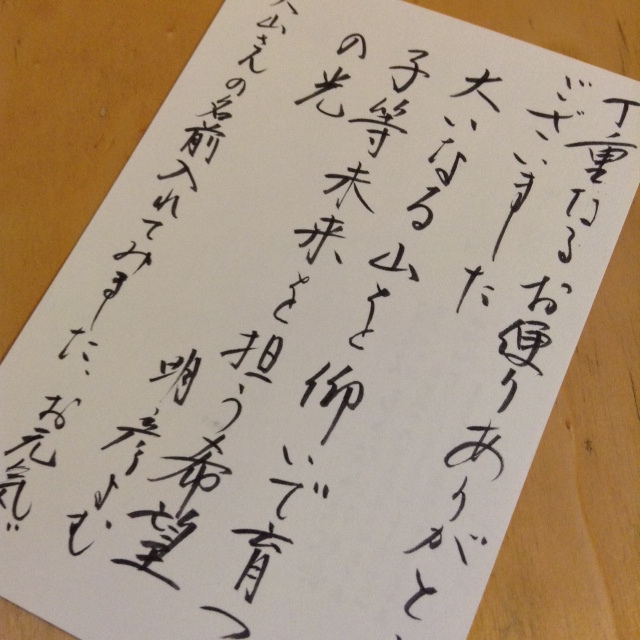 丁重なるお便りありがと
ございました
大いなる山を仰いで育つ
子等未来を担う希望
の光
明彦よむ
の名前入れてみました、お元気で